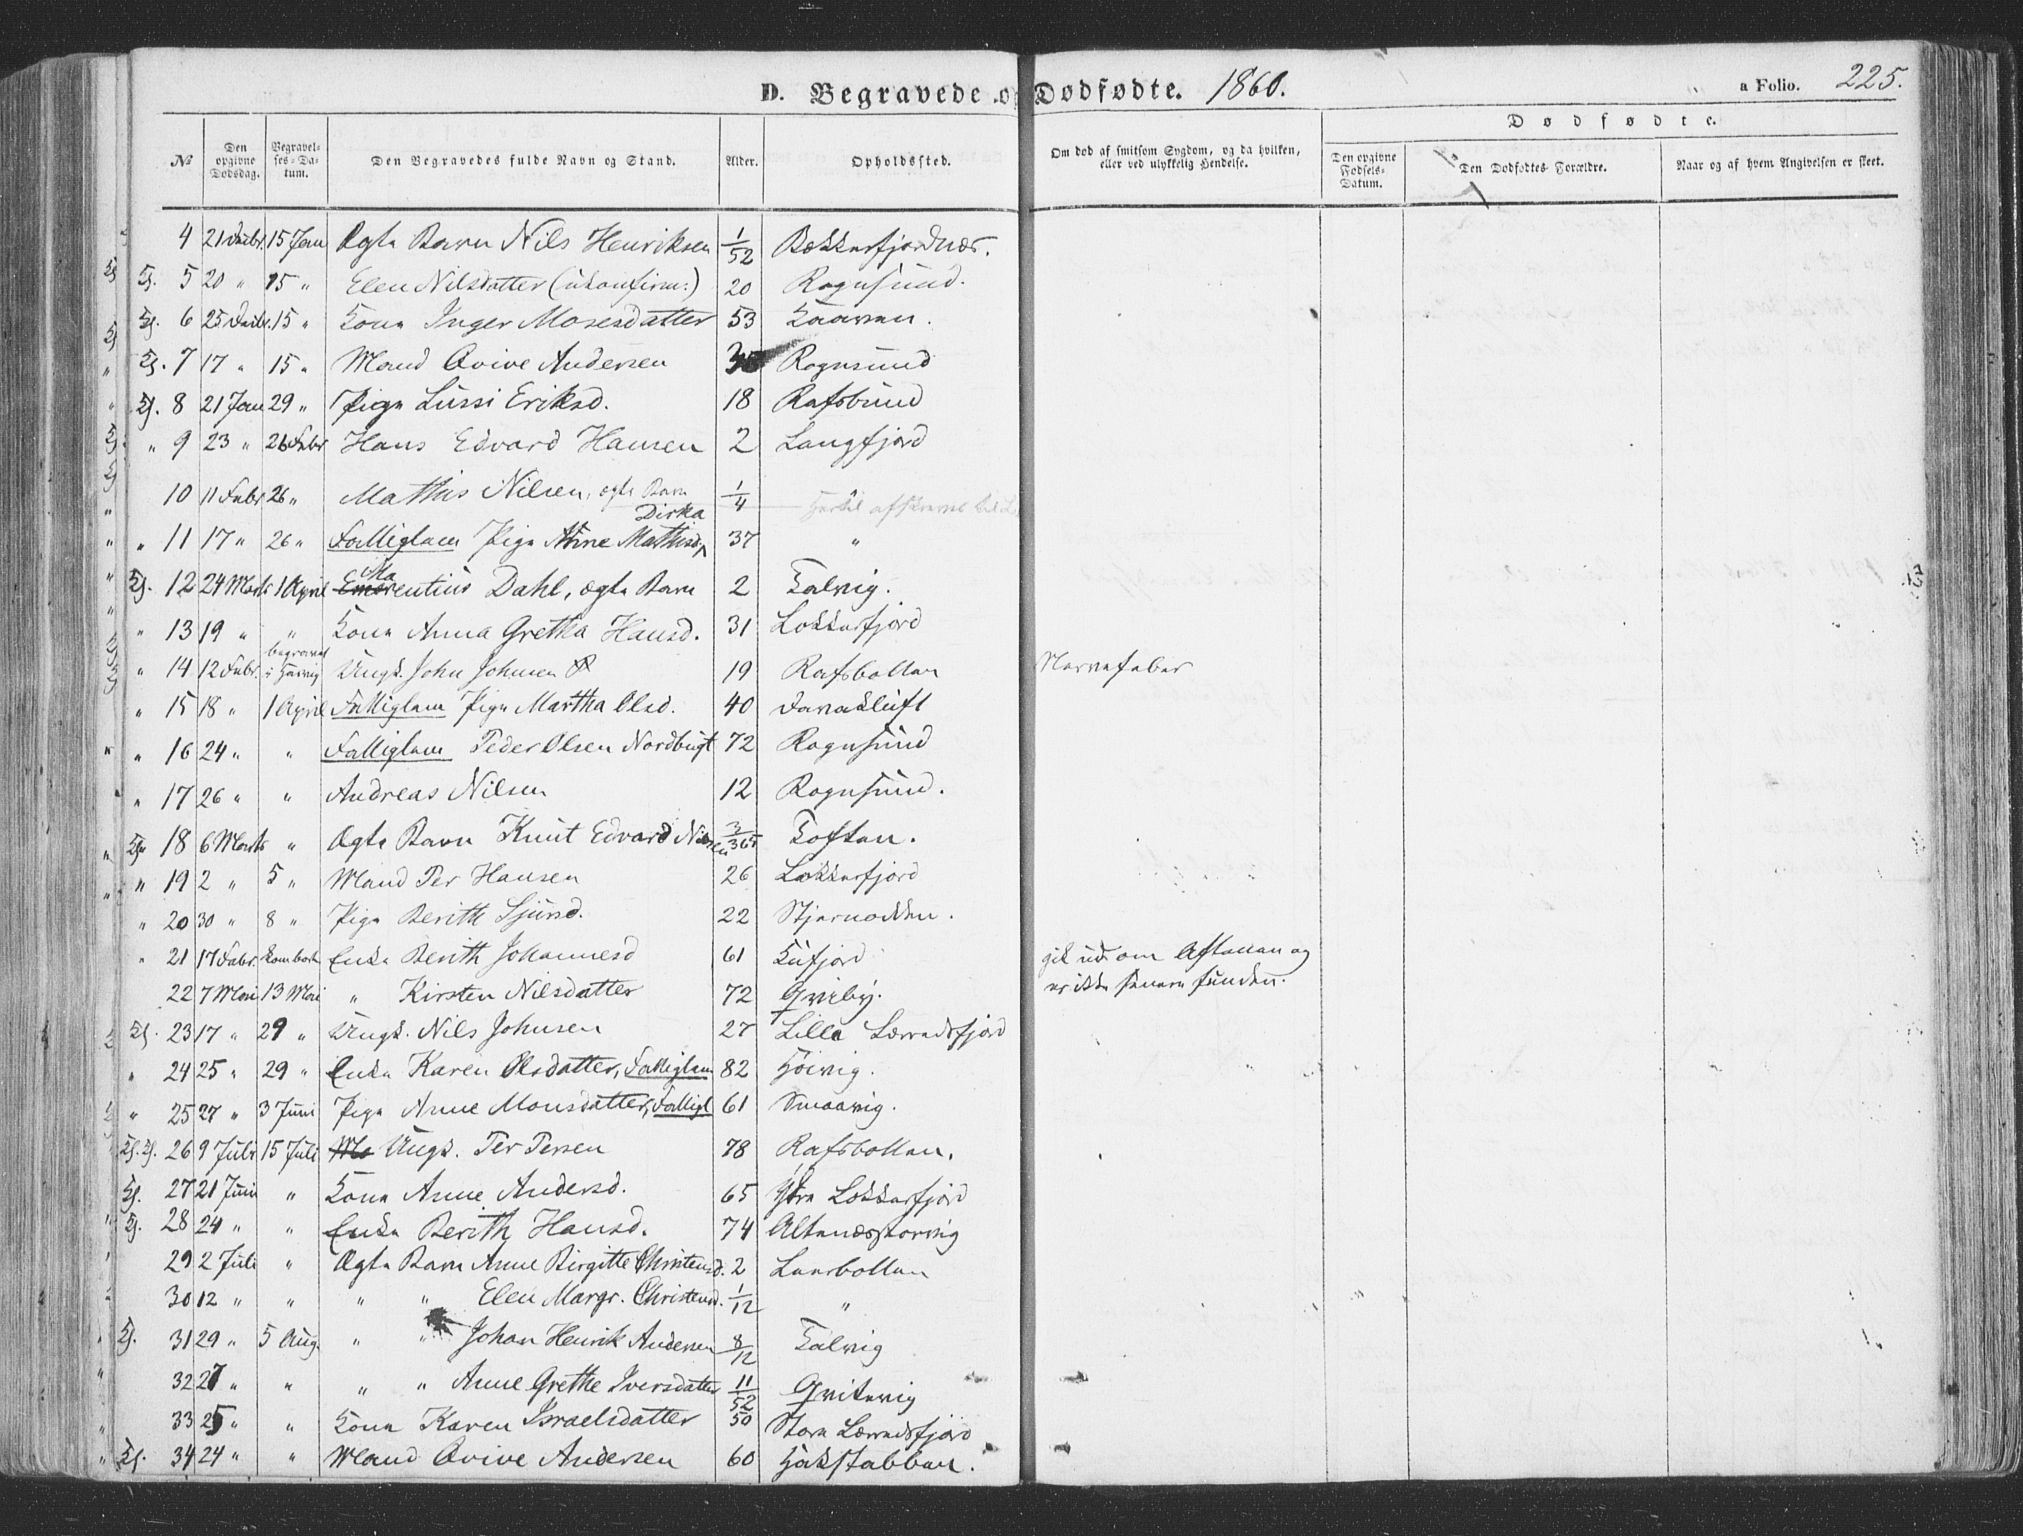 D. Begravede o Dødfødte. 1860. a Folio. 225.
Dødfødte.
№ Den opgivne Dødsdag. Begravelses-Datum. Den Begravedes fulde Navn og Stand. Alder. Opholdssted. Om død af smitsom Sygdom, og da hvilken, eller ved ulykkelig Hendelse. Den opgivne Fødsels-Datum. Den Dødfødtes Forældre. Naar og af hvem Angivelsen er skeet.
4 21 Febr. 15 Jan Ægte Barn Nils Henriksen 1/52 Bekkerfjordnæs.
5 20 " 15 " Elen Nilsdatter (ukonfirm:) 20 Rognsund.
6 25 Febr. 15 " Kone Inger Mosesdatter 53 Kaaven.
7 17 " 15 " Mand Avive Andersen Rognsund
8 21 Jan 29 " Pige Lussi Eriksd. 18 Rafsbund
" 9 23 " 26 Febr Hans Edvard Hansen 2 Langfjord
10 11 Febr 26 " Mathis Nilsen, ægte Barn 1/4
Dirka
" 11 17 " 26 " Fattiglem Pige Anne Mathisd. 37 "
Ma
12 24 Marts 1 April Emerentius Dahl, ægte Barn 2 Talvig.
" 13 19 " " Kone Anna Grethe Hansd. 31 Lokkerfjord
" 14 12 Febr. begravet i Haavig Ungk. John Johnsen 19 Rafsbotten Nervefeber
" 15 18 " 1 April Fattiglem Pige Martha Olsd. 40 Davaskluft
" 16 24 " " Fattiglem Peder Olsen Nordbugt 72 Rognsund
" 17 26 " " Andreas Nilsen 12 Rognsund.
18 6 Marts " Ægte Barn Knut Edvard Nilsen 3/365 Toften.
" 19 2 " 5 " Mand Per Hansen 26 Lokkerfjord
" 20 30 " 8 " Pige Berith Sjursd. 22 Stjernodden.
" 21 17 Febr. Enke Berith Johannesd 61 Kufjord gik ud om Aftenen og
er ikke senere funden.
22 7 Mai 13 Mai " Kirsten Nilsdatter 72 Qveby.
23 17 " 29 " Ungk. Nils Johnsen 27 Lille Lerredsfjord
" 24 25 " 29 " Enke Karen Olsdatter, Fattiglem 82 Høivig.
" 25 27 " 3 Juni Pige Anne Monsdatter, Fattigl 61 Smaavig.
26 9 Juli 15 Juli Ungk. Per Persen 78 Rafsbotten.
27 21 Juni " Kone Anne Andersd. 65 Ytre Lokkerfjord
28 24 " " Enke Berith Hansd. 74 Altenæsstorvig
29 2 Juli " Ægte Barn Anne Birgitte Christensd. 2 Leerbotten
30 12 " " " " Elen Margr. Christensd. 1/12 "
31 29 " 5 Aug. " " Johan Henrik Andersen 8/12 Talvig
32 27 " " " " Anne Grethe Iversdatter 11/52 Qvitevig
33 25 " " Kone Karen Israelsdatter 50 Store Lerredsfjord
34 24 " " Mand Avive Andersen 60 Hakstabben.